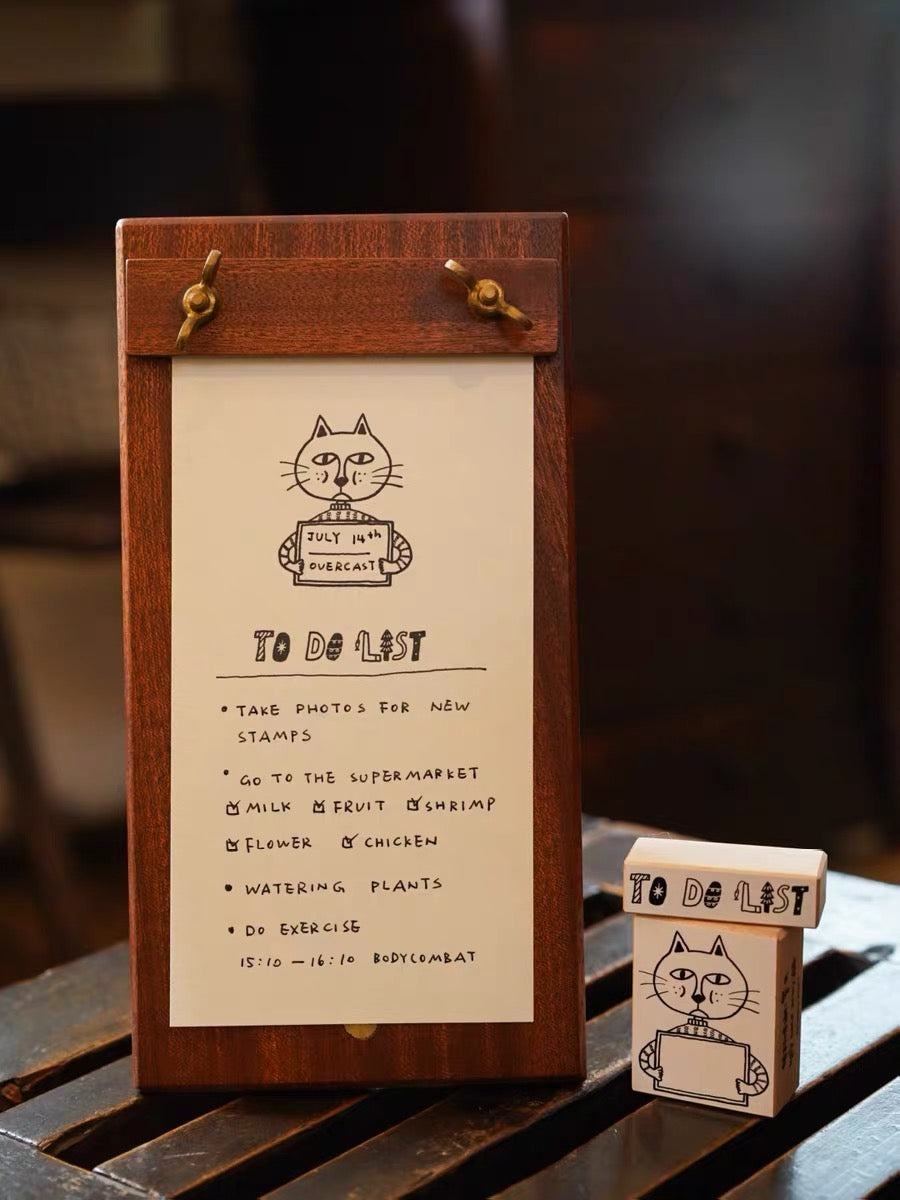 JULY 14th
OVERCAST
TO DO LIST
• TAKE PHOTOS FOR NEW
STAMPS
• GO TO THE SUPERMARKET
☑ MILK ☑ FRUIT ☑ SHRIMP
☑ FLOWER ☑ CHICKEN
• WATERING PLANTS
• DO EXERCISE
15:10 — 16:10 BODYCOMBAT
TO DO LIST